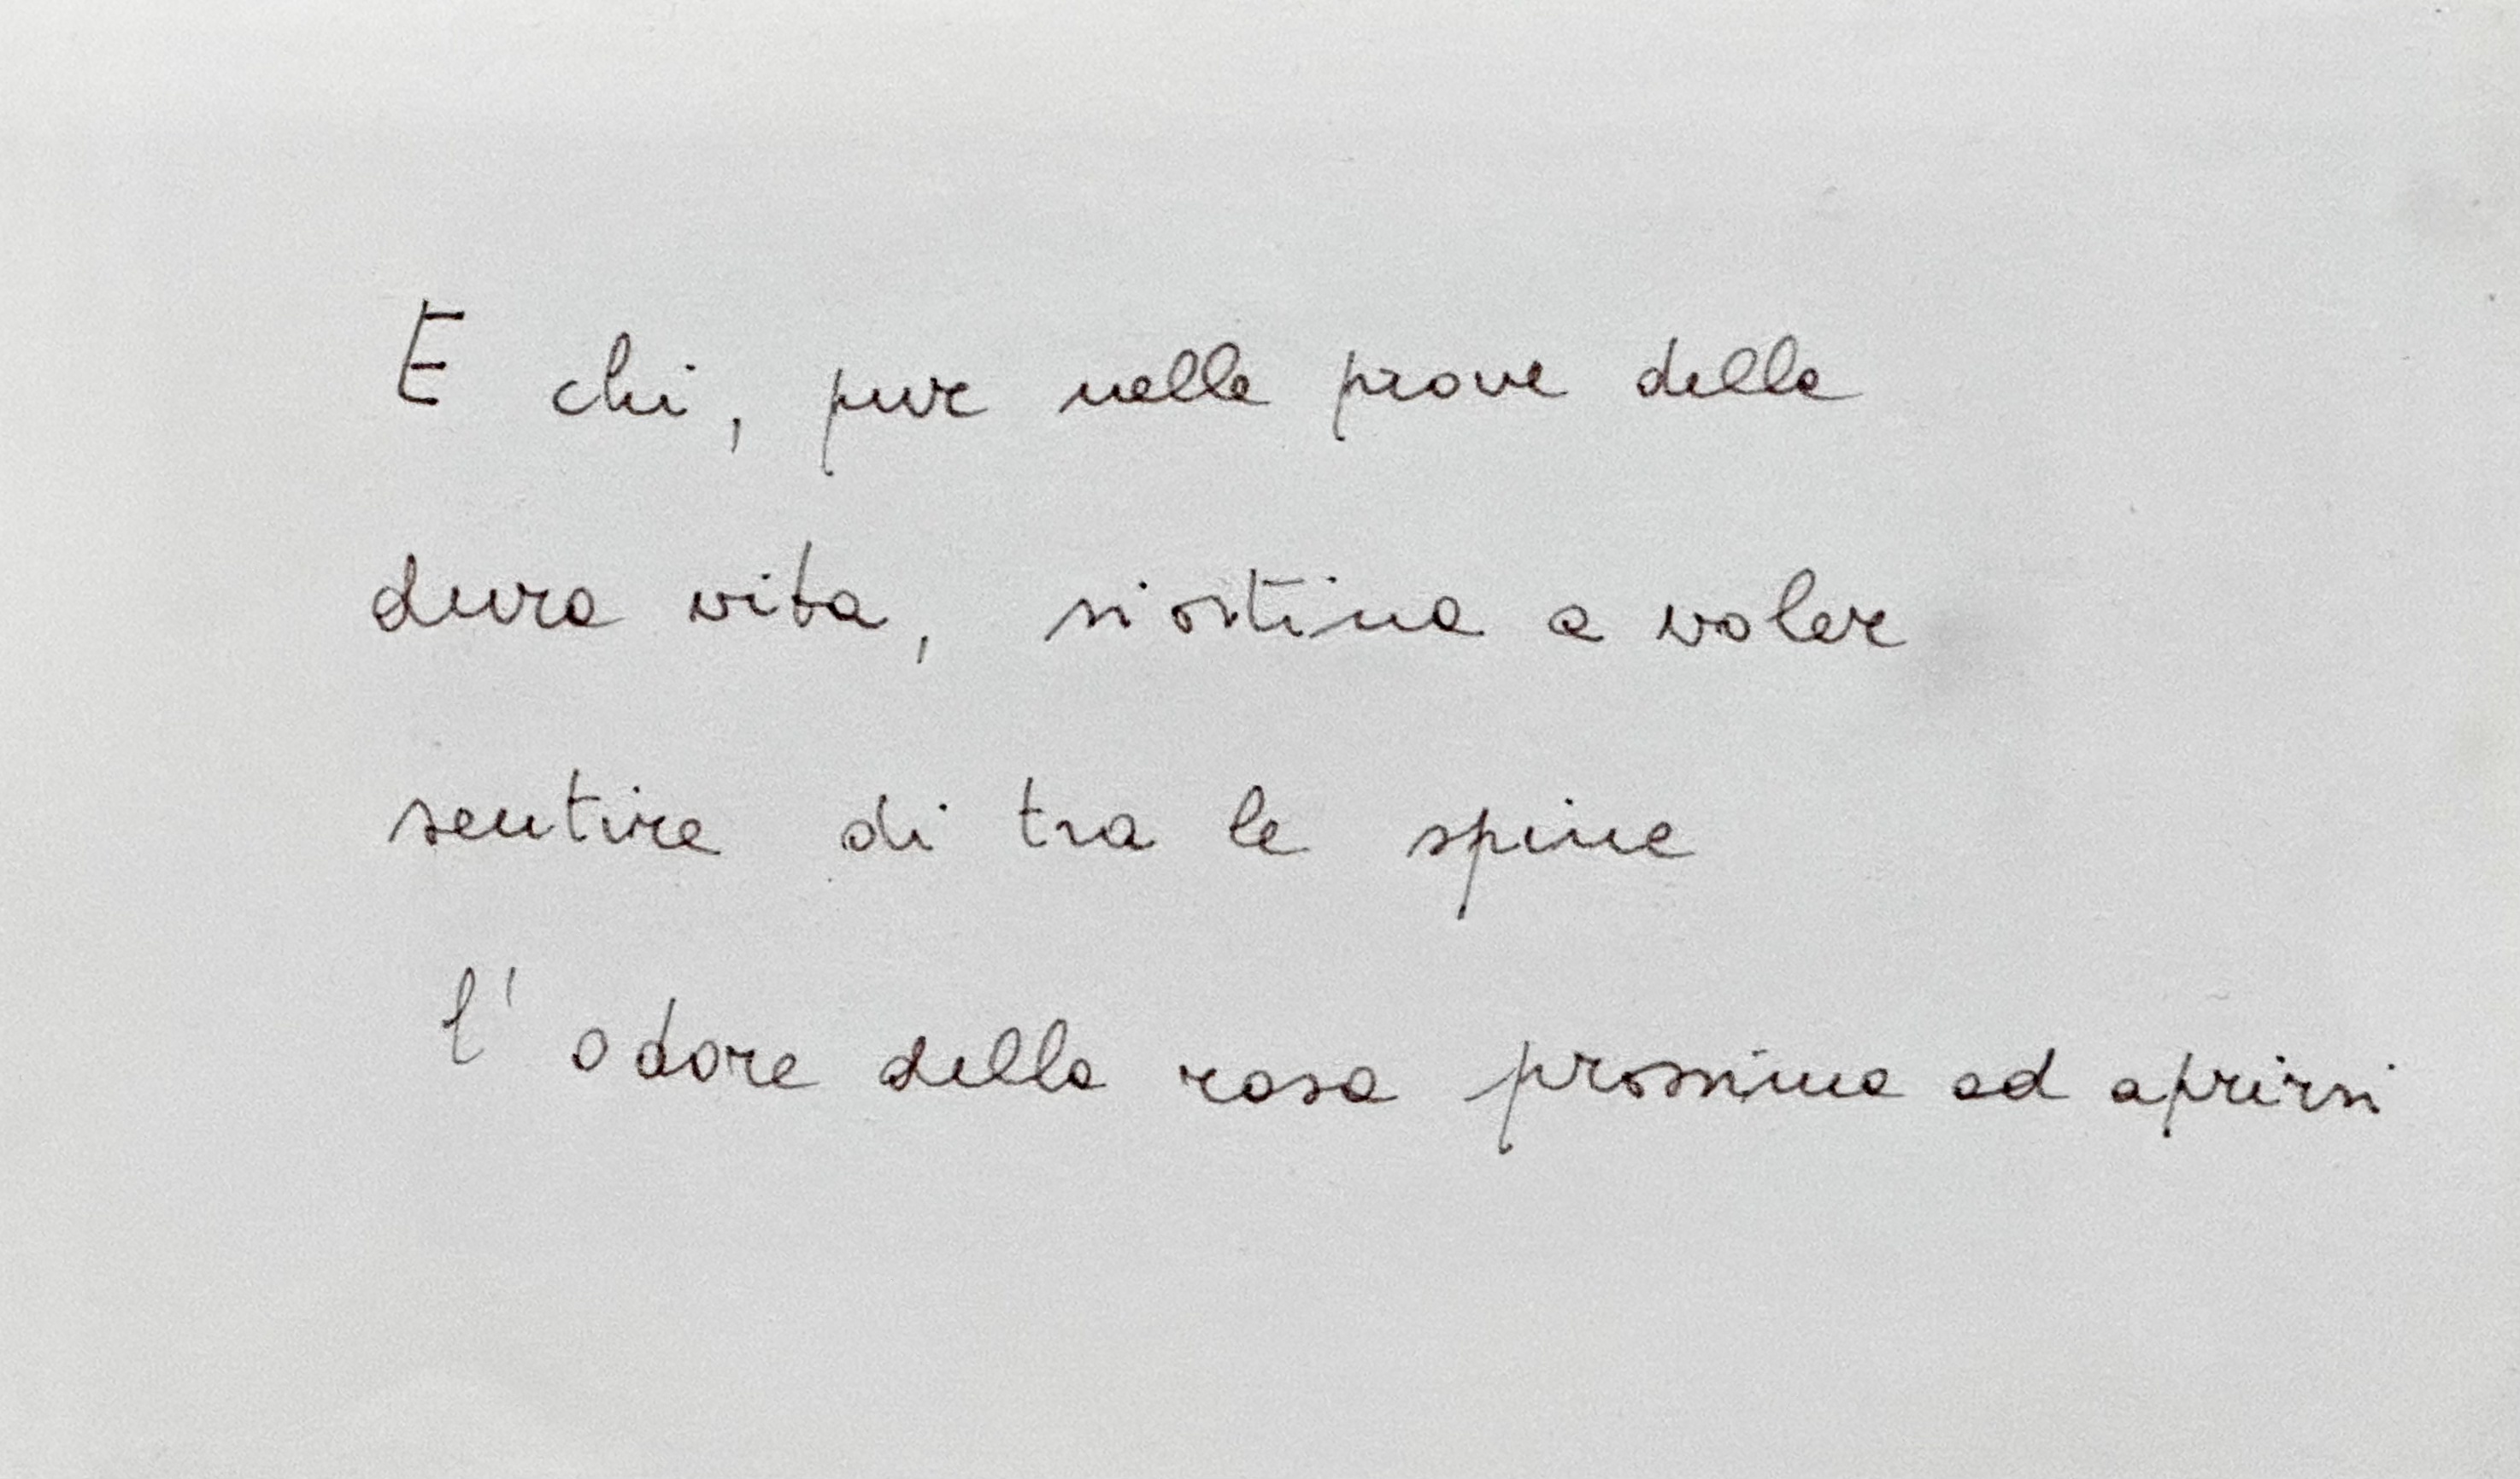 E chi, pur nelle prove della
dura vita, si ostina a voler
sentire di tra le spine
l' odore della rosa prossima ad aprirsi